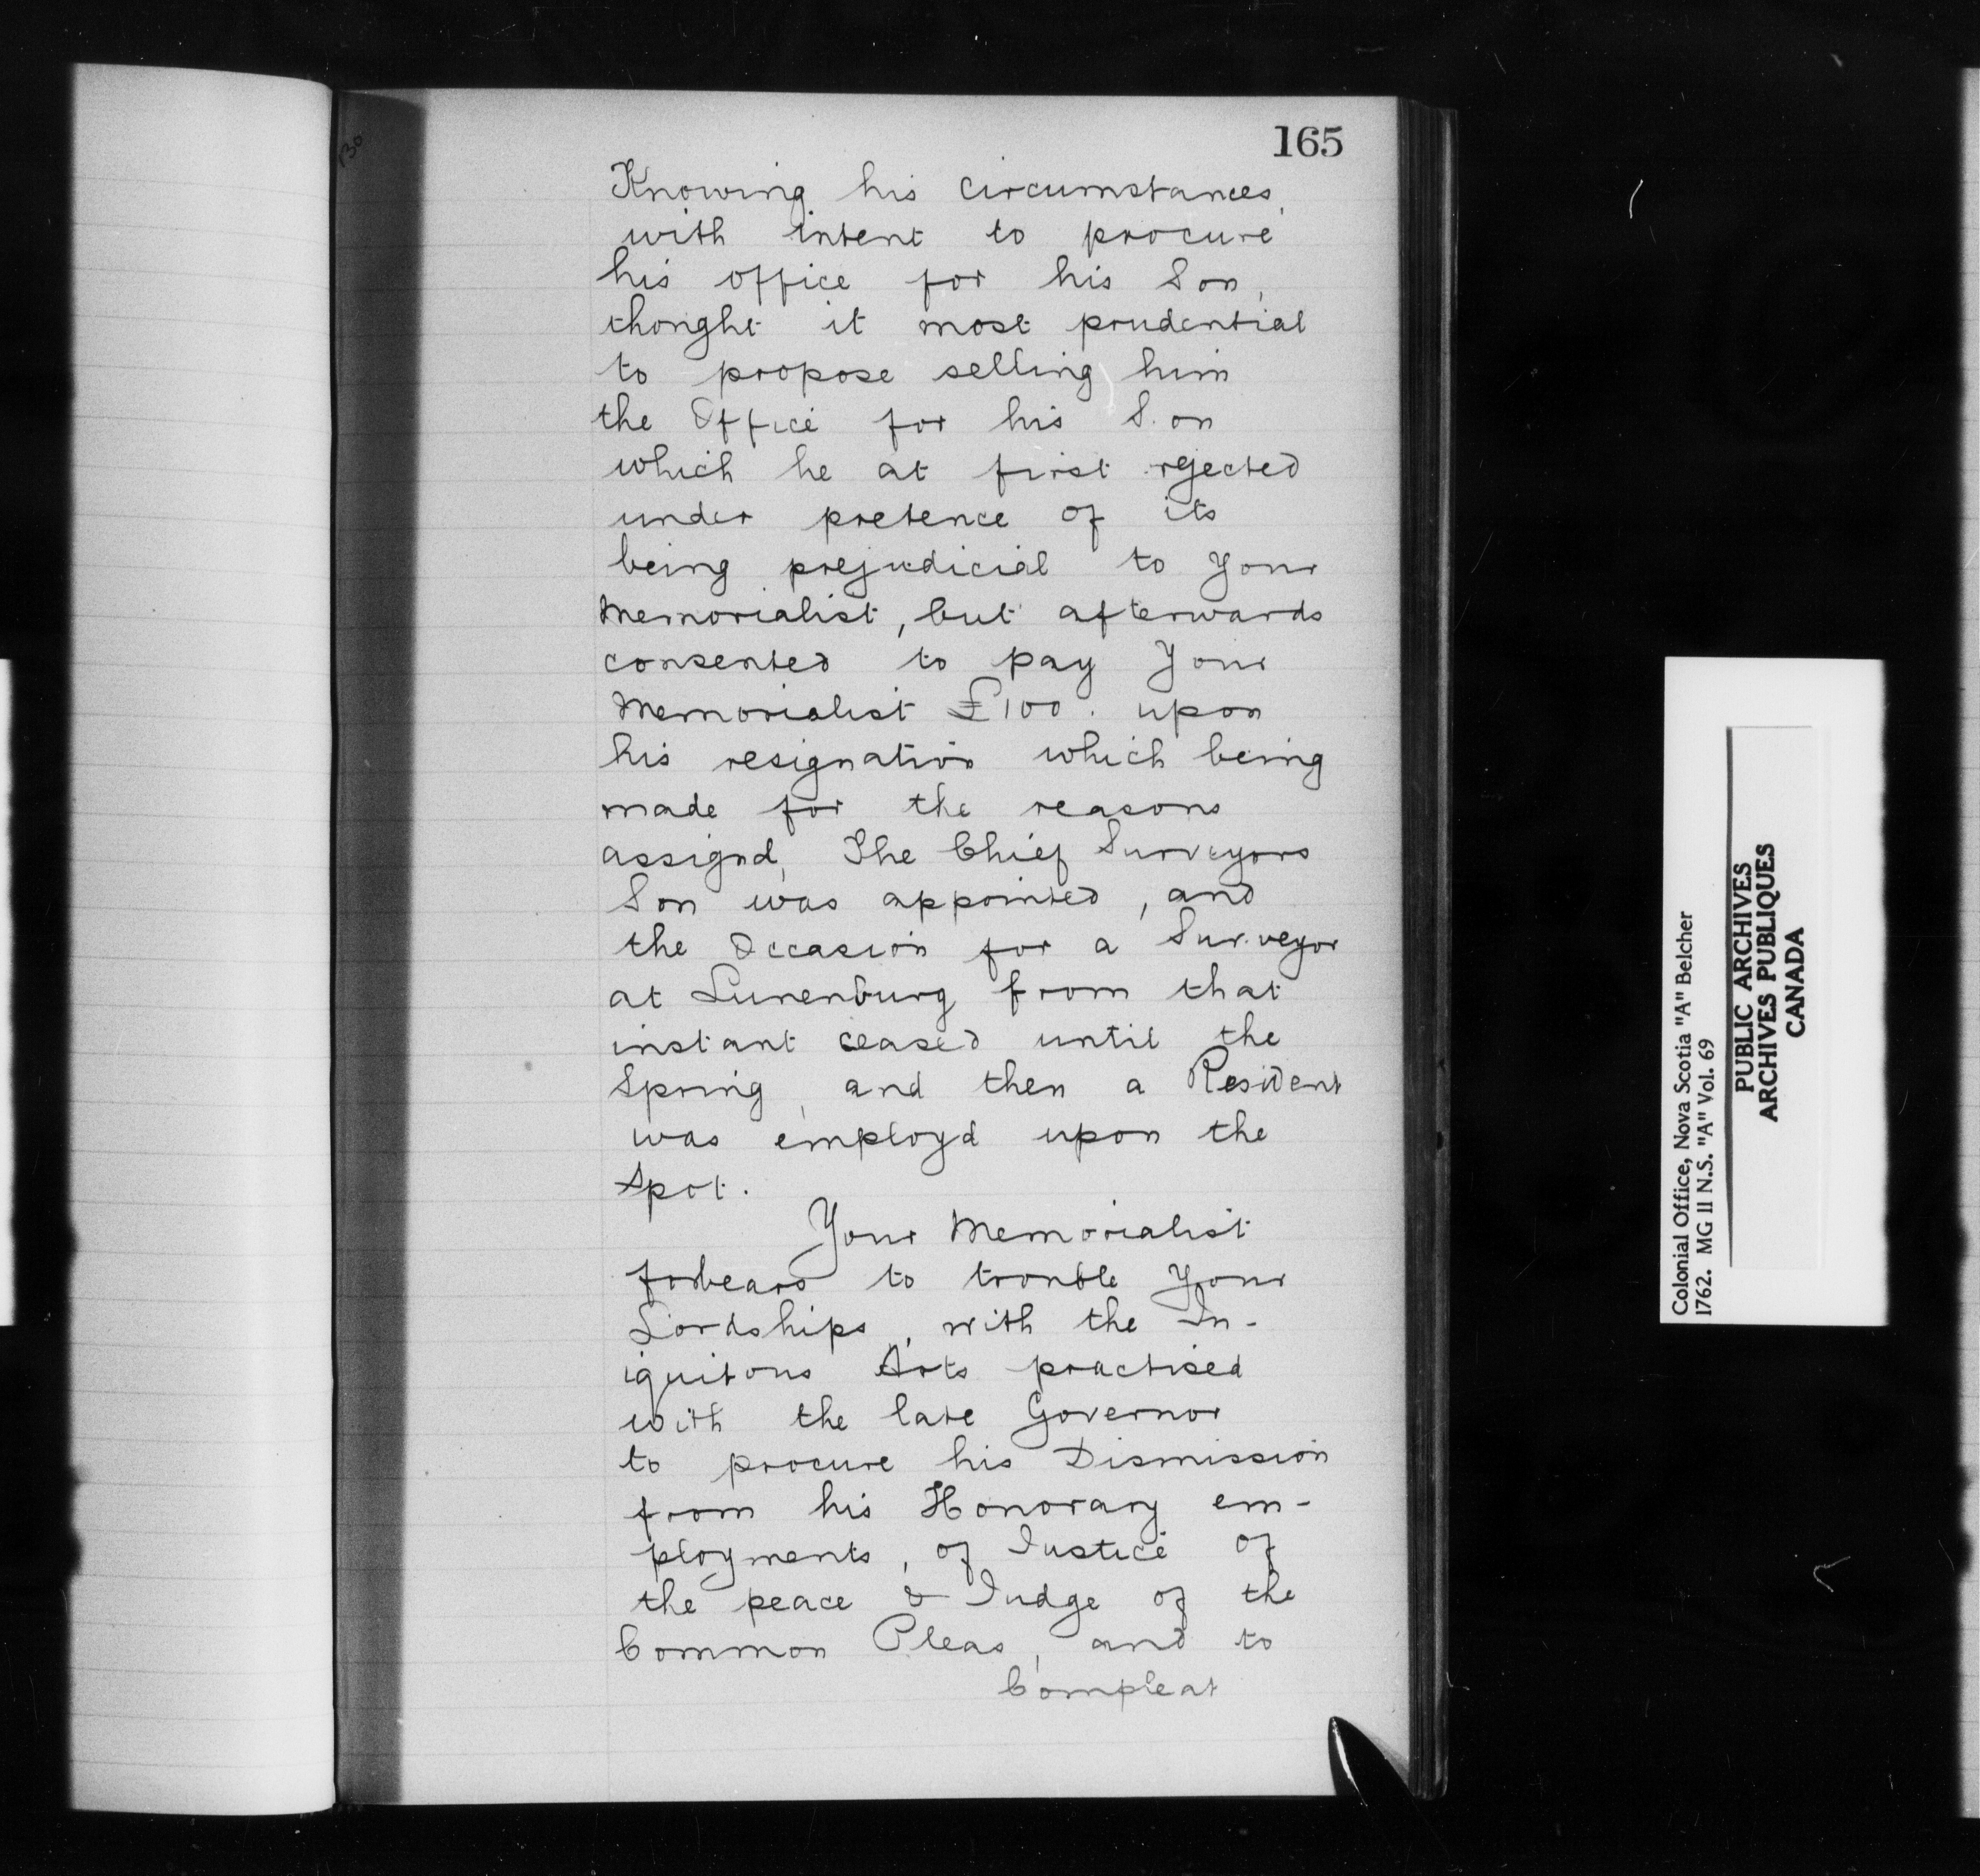 165
Knowing his circumstances,
with intent to procure
his office for his Son,
thought it most prudential
to propose selling him
the Office for his Son
which he at first rejected
under pretence of its
being prejudicial to Your
Memorialist, but afterwards
consented to pay Your
Memorialist £100. upon
his resignation which being
made for the reasons
assignd, The Chief Surveyors
Son was appointed, and
the Occasion for a Surveyor
at Lunenburg from that
instant ceased until the
Spring, and then a Resident
was employd upon the
Spot.
Your Memorialist
forbears to trouble Your
Lordships, with the In-
iquitous Arts practised
with the late Governor
to procure his Dismission
from his Honorary em-
ployments, of Justice of
the peace & Judge of the
Common Pleas, and to
Compleat
Colonial Office, Nova Scotia "A" Belcher
1762. MG II N.S. "A" Vol. 69
PUBLIC ARCHIVES
ARCHIVES PUBLIQUES
CANADA